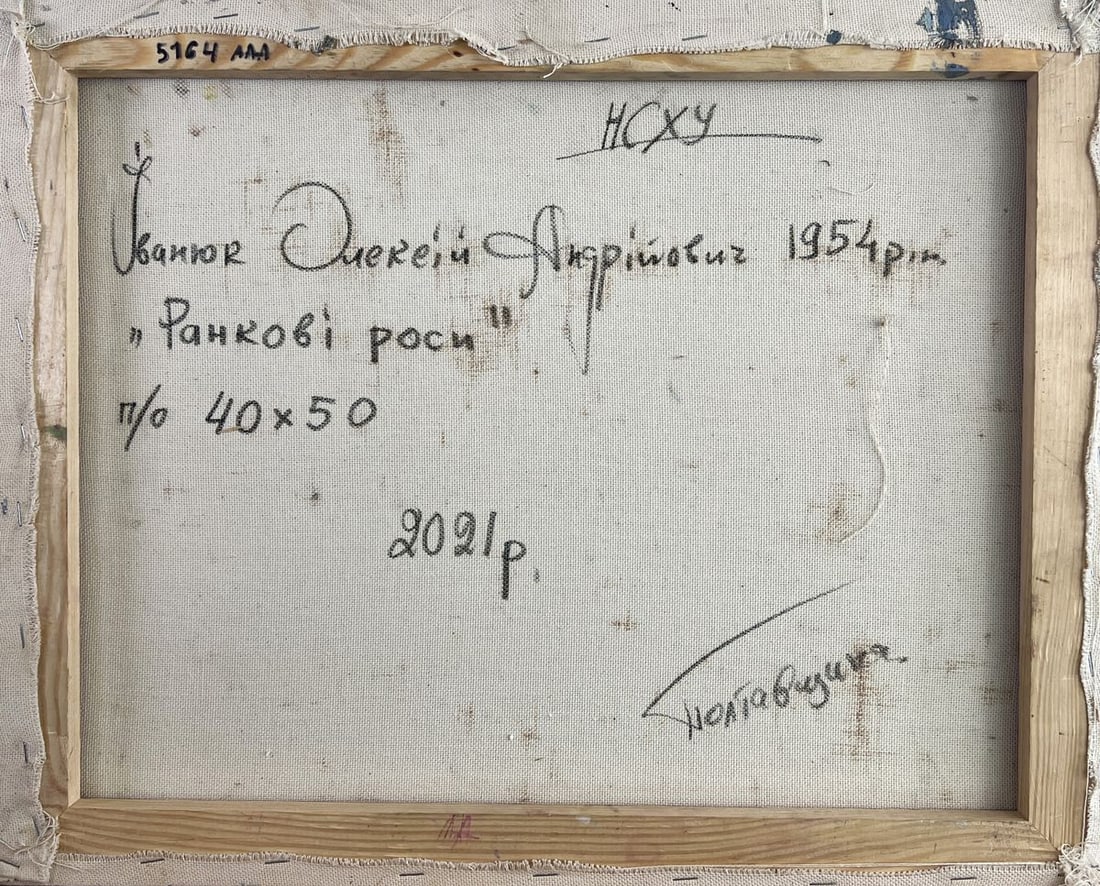 5164 ААА
НСХУ
Іванюк Олексій Андрійович 1954р.н.
„Ранкові роси"
п/о 40х50
2021р.
Полтавщина